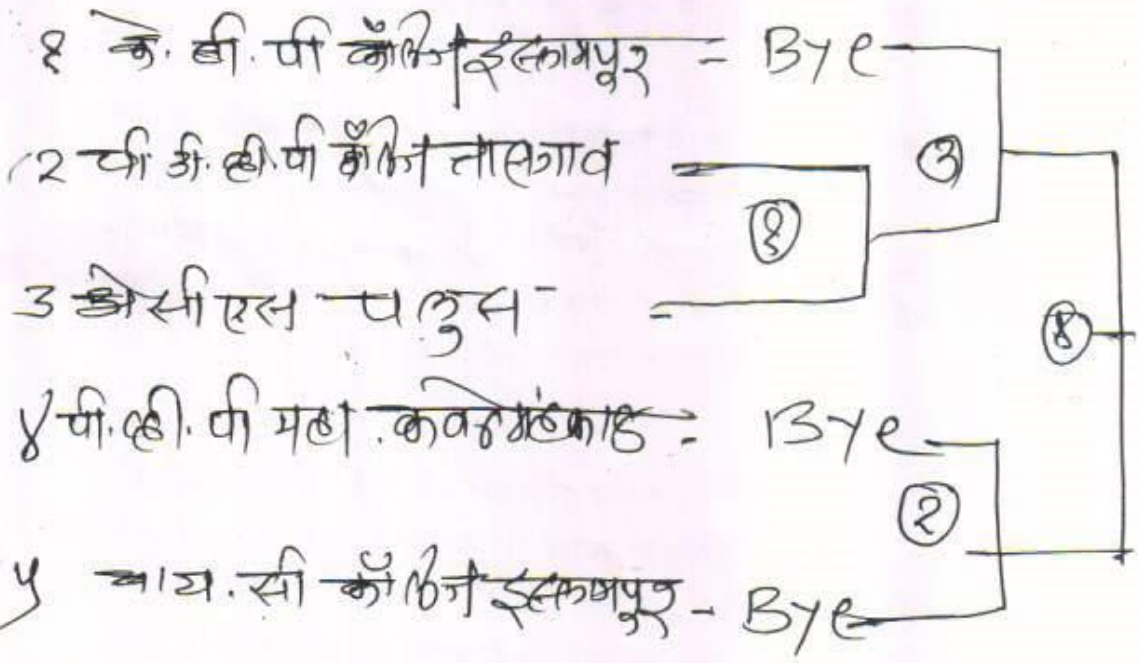 १ के. बी. पी कॉलेज इस्लामपूर - Bye
२ पी. डी. व्ही. पी कॉलेज तासगाव
③
①
3 ए सी एस पलुस -
४
४ पी. व्ही. पी महा. कवठेमहंकाळ - Bye
②
५ वाय. सी कॉलेज इस्लामपूर - Bye